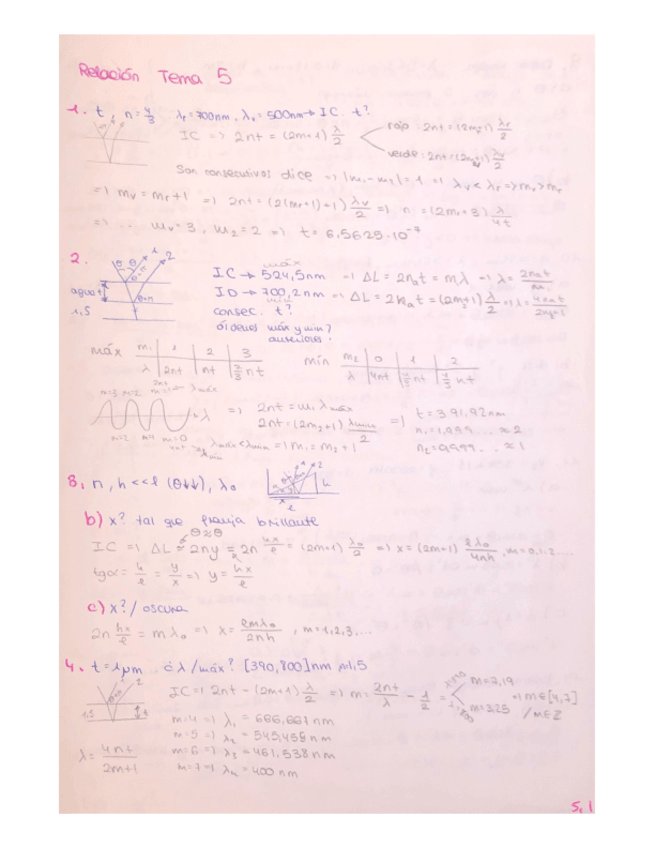 Relación Tema 5
1. t, n=4/3 λr=700nm, λv=500nm → IC t?
IC => 2nt = (2m+1) λ/2
rojo: 2nt = (2m+1) λr/2
verde: 2nt = (2m+1) λv/2
Son consecutivos dice => |m1-m2| = 1 => λv < λr => mv > mr
=> mv = mr+1 => 2nt = (2(mr+1)+1) λv/2 => n = (2mr+3) λ/4t
=> ... mv=3, m2=2 => t= 6,5625·10^-7
2.
máx
IC → 524,5nm => ΔL = 2nat = m1λ => λ = 2nat/m1
ID → 700,2nm => ΔL = 2nat = (2m2+1) λ/2 => λ = 4nat/2m2+1
consec. t?
órdenes máx y min?
agua t
1,5
máx m1 1 2 3
λ 2nt nt 2/3 nt
mín m2 0 1 2
λ 4nt 4/3 nt 4/5 nt
=> 2nt = m1 λmáx
2nt = (2m2+1) λmin/2
=> t=391,92nm
λmáx<λmin => m1 = m2+1
3. n, h<<l (θ↓↓), λ0
b) x? tal que franja brillante
IC => ΔL = 2ny = 2n hx/l = (2m+1) λ0/2 => x = (2m+1) lλ0/4nh, m=0,1,2....
tgα = h/l = y/x => y = hx/l
c) x? / oscura
2n hx/l = mλ0 => x = lmλ0/2nh, m=1,2,3,...
4. t=1μm ¿λ/máx? [390,800]nm n1,5
IC => 2nt = (2m+1) λ/2 => m = 2nt/λ - 1/2 =
m=7,19
m=3,25
=> m∈[4,7]
/m∈Z
1,5 t
λ = 4nt/2m+1
m=4 => λ1 = 666,667 nm
m=5 => λ2 = 545,455 nm
m=6 => λ3 = 461,538 nm
m=7 => λ4 = 400 nm
5.1